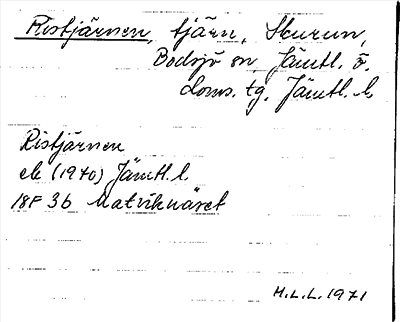 Ristjärnen, tjärn, Skurun,
Bodsjö sn, Jämtl. ö.
doms. tg. Jämtl. l.
Ristjärnen
ek (1970) Jämtl. l.
18F 3b Matviknäset
H.L.L. 1971